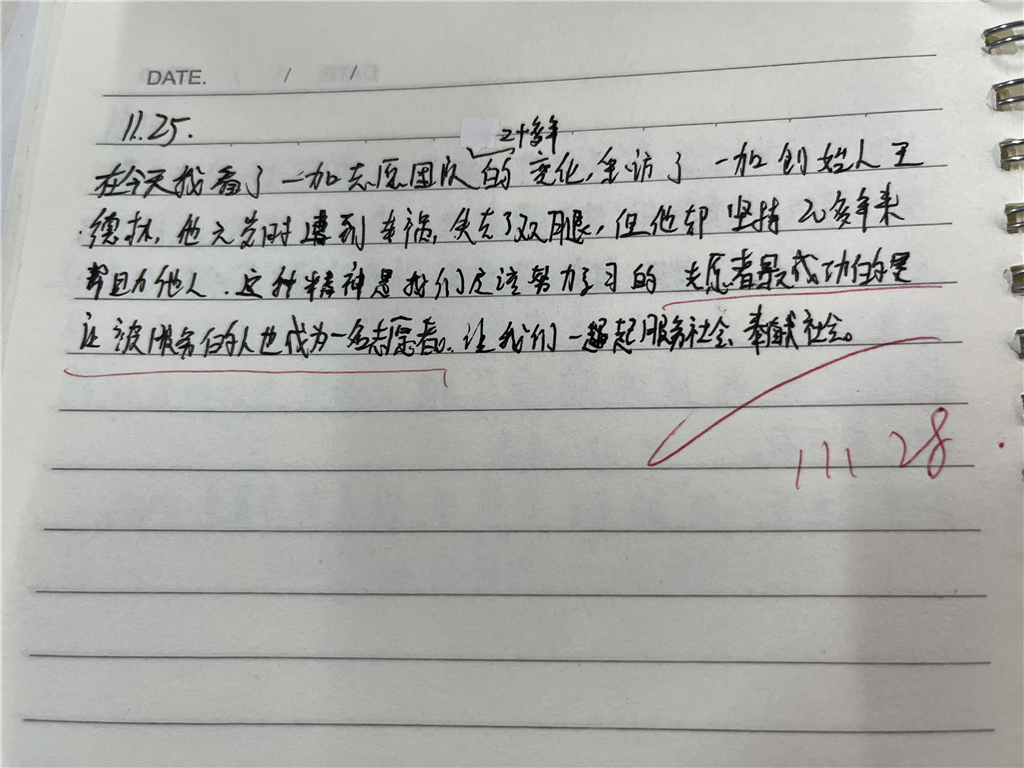 DATE. / /
11.25.
二十多年
在今天我看了一加志愿团队的变化,采访了一加创始人王
德林,他六岁时遭到车祸,失去了双腿,但他却坚持20多年来
帮助他人.这种精神是我们应该努力学习的 志愿者最成功的是
让被服务的人也成为一名志愿者。让我们一起起服务社会、奉献社会。
11 28